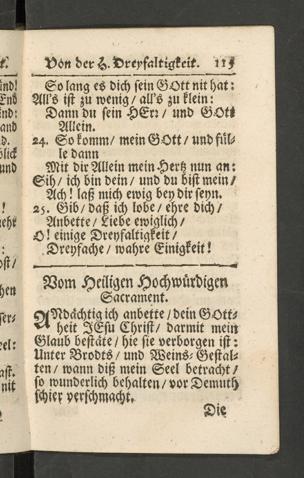 Von der H. Dreyfaltigkeit. 115
So lang es dich sein GOtt nit hat:
All's ist zu wenig / all's zu klein:
Dann du sein HErz / und GOtt
Allein.
24. So komm / mein GOtt / und fül-
le dann
Mit dir Allein mein Hertz nun an:
Sih / ich bin dein / und du bist mein /
Ach! laß mich ewig bey dir seyn.
25. Gib / daß ich lobe / ehre dich /
Anbette / Liebe ewiglich /
O! einige Dreyfaltigkeit /
Dreyfache / wahre Einigkeit!
Vom Heiligen Hochwürdigen
Sacrament.
ANdächtig ich anbette / dein GOtt-
heit JEsu Christ / darmit mein
Glaub bestäte / hie sie verborgen ist:
Unter Brodts / und Weins-Gestal-
ten / wann diß mein Seel betracht /
so wunderlich behalten / vor Demuth
schier verschmacht.
Die